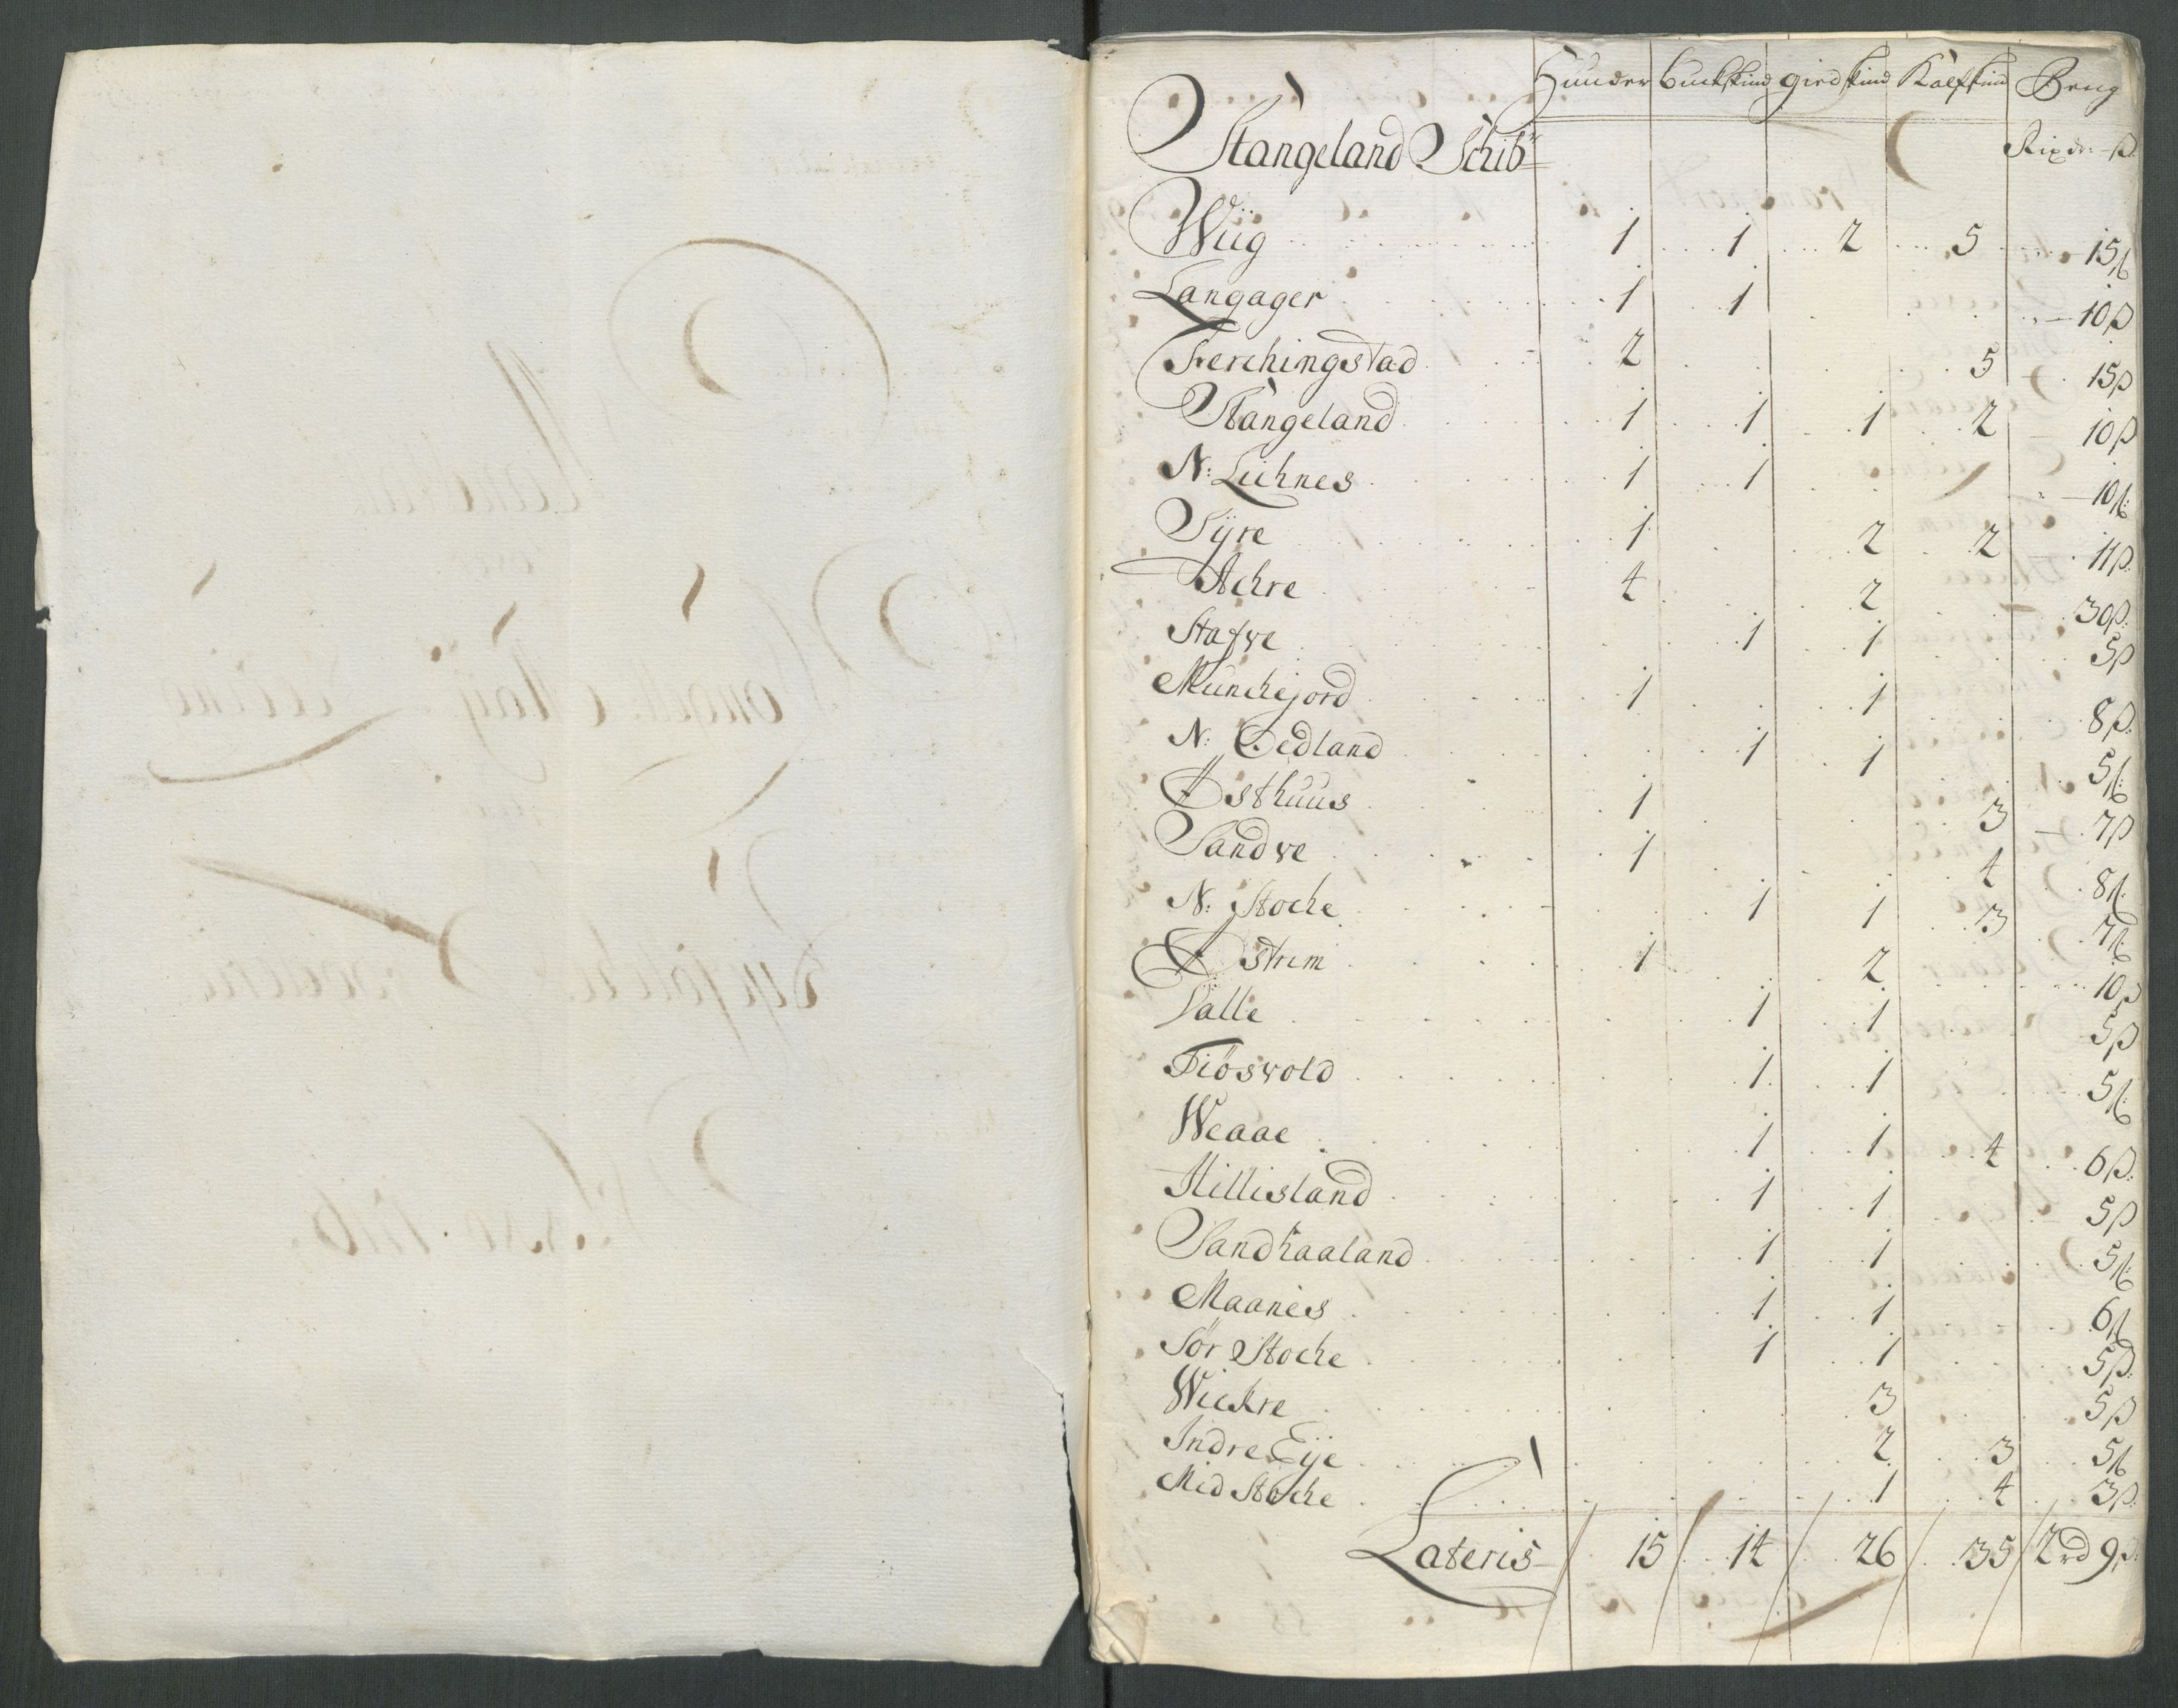 Huuder Buckskind giedskind Kalfskind Peng
Stangeland Schib: Rixdr: ß
Wiig 1 1 2 5 15ß
Langager 1 1 10ß
Ferchingstad 2 5 15ß
Stangeland 1 1 1 2 10ß
N: Liehnes 1 1 10ß:
Syre 1 2 2 11ß:
Achre 4 2 30ß:
Stafve 1 1 5ß
Munchejord 1 1 8ß:
N: Oedland 1 1 5ß:
Østhuus 1 3 7ß
Sandve 1 4 8ß:
N: Stoche 1 1 3 7ß:
Østrim 1 2 10ß
Salle 1 1 5ß
Tiösvold 1 1 5ß:
Weaae 1 1 4 6ß:
Hillisland 1 1 5ß
Sandhaaland 1 1 5ß:
Maanes 1 1 6ß
Sör Stoche 1 1 5ß:
Wickre 3 5ß
Indre Eije 2 3 5ß
Mid Stoche 1 4 3ß:
Lateris 15 14 26 35 2rd 9ß: